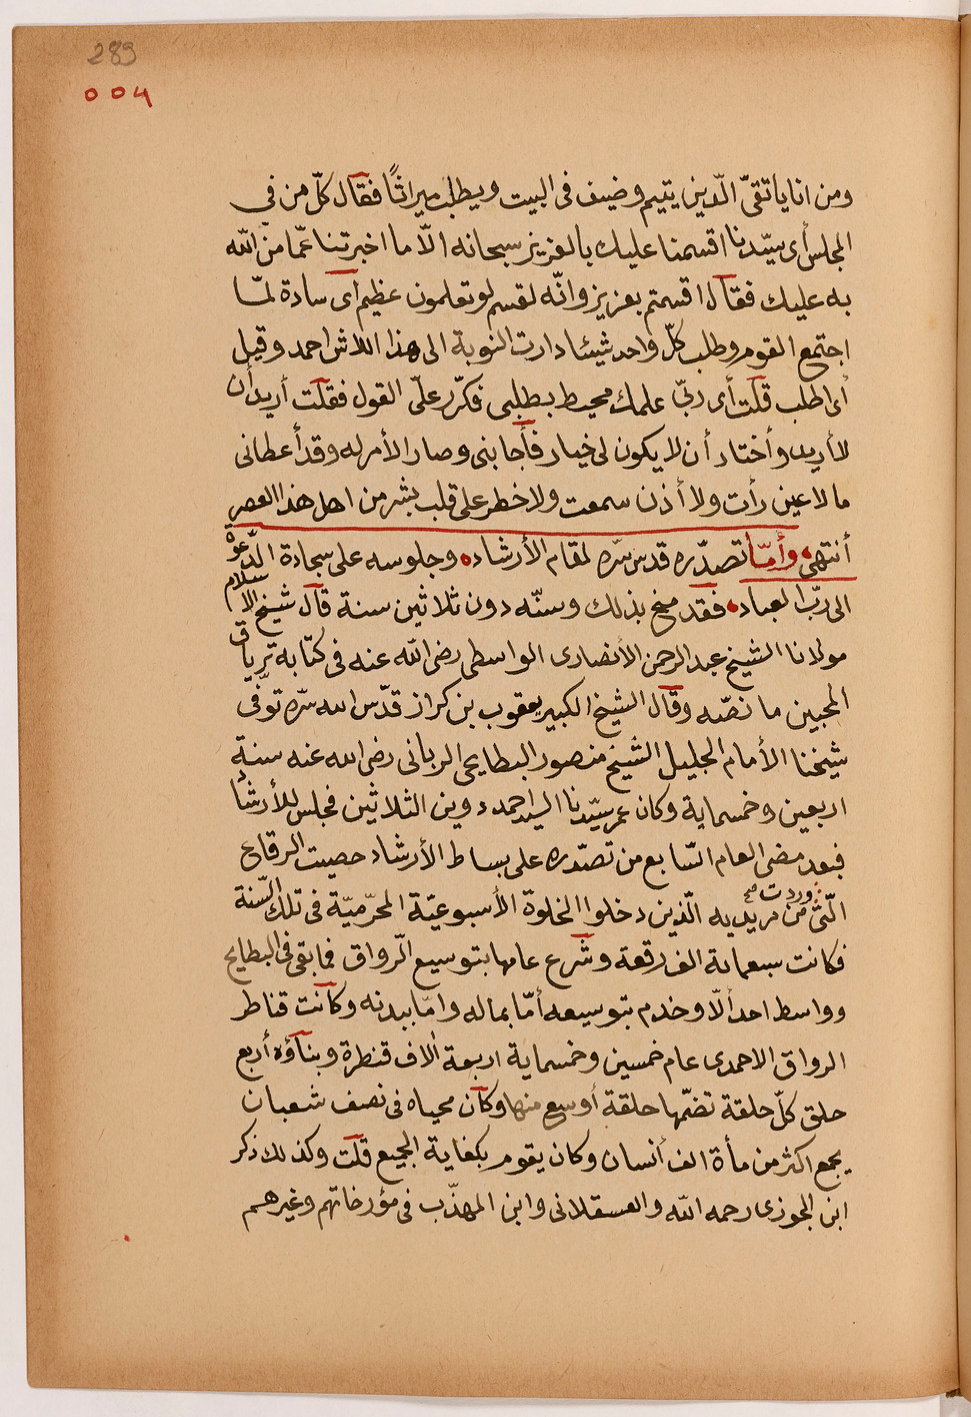 289
٥٥٤
ومن انا يا تقيّ الدّين يتيم وضيف فى البيت ويطلب ميراثًا فقال كلّ من في
المجلس أى سيّدنا اقسمنا عليك بالعزيز سبحانه الّا ما اخبرتنا عمّا منّ اللّه
به عليك فقال اقسمتم بعزيز وانّه لقسم لو تعلمون عظيم أى سادة لمّا
اجتمع القوم وطلب كلّ واحد شيئا دارت النوبة الى هذا اللاش احمد وقيل
أى اطلب قلت أى ربّي علمك محيط بطلبى فكرّر علىّ القول فقلت أريد أن
لا أريد وأختار أن لا يكون لى خيار فأجابنى وصار الأمر له وقد أعطانى
ما لا عين رأت ولا أذن سمعت ولا خطر على قلب بشر من اهل هذا العصر
أنتهى وأمّا تصدّره قدس سّره لمقام الأرشاد وجلوسه على سجادة الدّعوة
الى ربّ العباد فقد منح بذلك وسنّه دون ثلاثين سنة قال شيخ الاسلام
مولانا الشيخ عبد الرحمن الأنصارى الواسطى رضى اللّه عنه فى كتابه ترياق
المحبين ما نصّه وقال الشيخ الكبير يعقوب بن كراز قدّس الله سرّه توّفى
شيخنا الأمام الجليل الشيخ منصور البطايحى الربانى رضى الله عنه سنة
اربعين وخمسماية وكان عمر سيّدنا السيد احمد دوين الثلاثين فجلس للأرشاد
فبعد مضى العام السّابع من تصدّره على بساط الأرشاد حصيت الرقاع
الّتى وردت صح من مريديه الّذين دخلوا الخلوة الأسبوعيّة المحرّميّة فى تلك السّنة
فكانت سبعماية الف رقعة وشرع عامها بتوسيع الّرواق فما بقى فى البطايح
وواسط احد الّا وخدم بتوسيعه أمّا بماله وامّا ببدنه وكانت قناطر
الرواق الاحمدى عام خمسين وخمسماية اربعة الاف قنطرة وبناؤه أربع
حلق كلّ حلقة تضمّها حلقة أوسع منها وكان محياه فى نصف شعبان
يجمع اكثر من مأة الف أنسان وكان يقوم بكفاية الجميع قلت وكذلك ذكر
ابن الجوزى رحمه اللّه والعسقلانى وابن المهذّب فى مؤرخاتهم وغيرهم